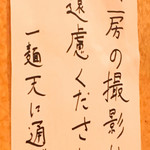 房の撮影は
遠慮くださ
一麺天に通